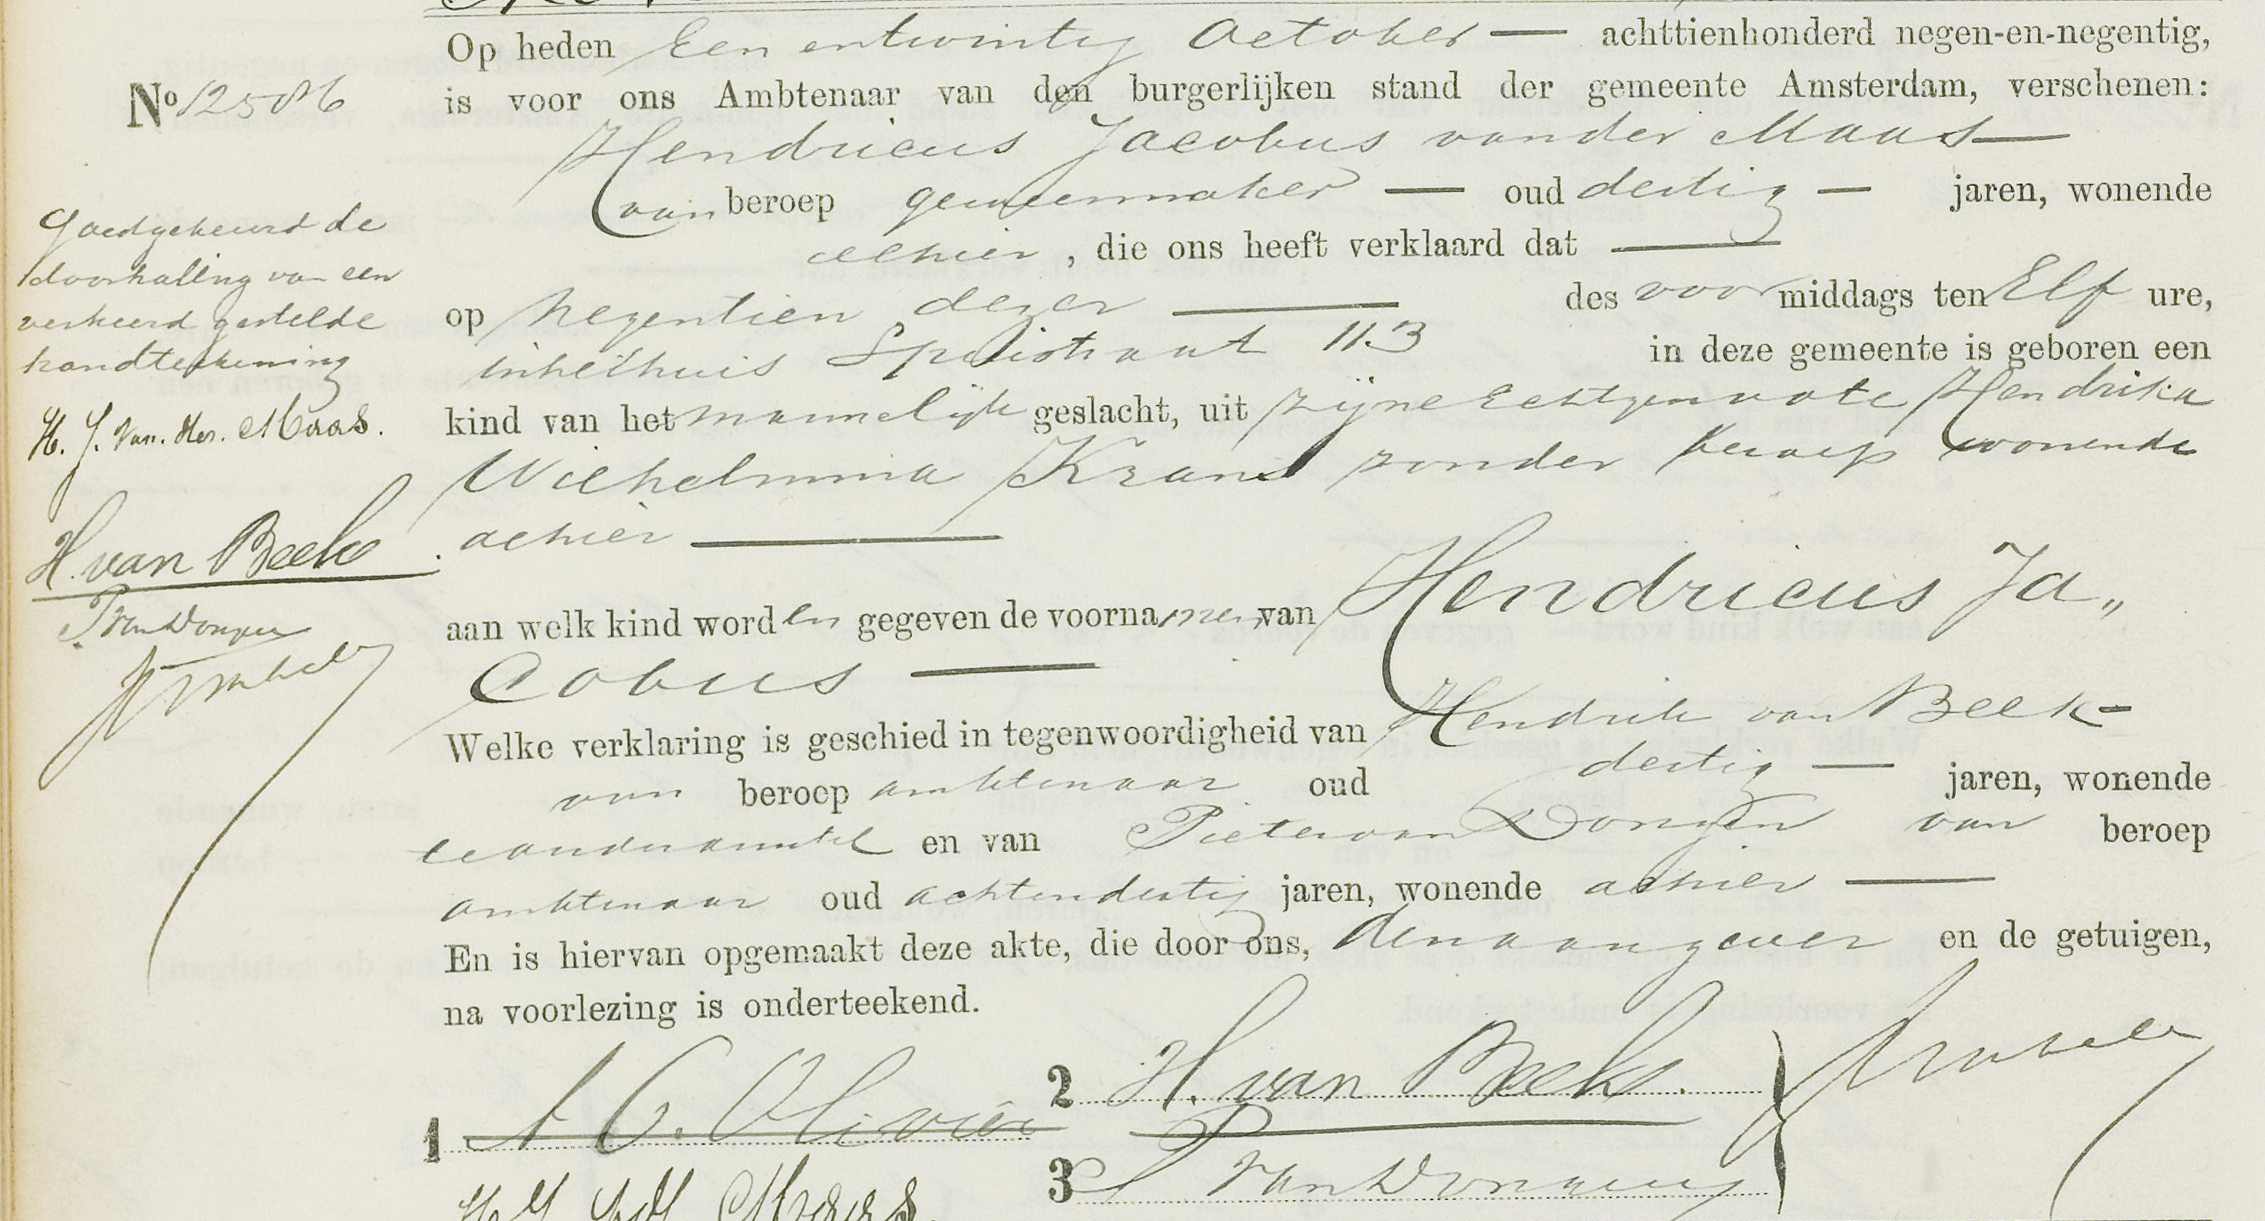 Op heden Een entwintig October — achttienhonderd negen-en-negentig,
No 12586
is voor ons Ambtenaar van den burgerlijken stand der gemeente Amsterdam, verschenen:
Hendricus Jacobus vander Maas —
van beroep oud dertig — jaren, wonende
alhier, die ons heeft verklaard dat —
op Negentien dezer — des voormiddags ten Elf ure,
inhethuis Spuistraat 113 in deze gemeente is geboren een
kind van het mannelijk geslacht, uit zijne Echtgenoote Hendrika
Wilhelmina Krans zonder beroep wonende
alhier —
aan welk kind worden gegeven de voornamen van Hendricus Ja„
cobus —
Welke verklaring is geschied in tegenwoordigheid van Hendrik van Beek —
van beroep ambtenaar oud dertig — jaren, wonende
en van Pieter van Dongen van beroep
ambtenaar oud achtendertig jaren, wonende alhier —
En is hiervan opgemaakt deze akte, die door ons, den aangever en de getuigen,
na voorlezing is onderteekend.
Goedgekeurd de
doorhaling van een
verkeerd gestelde
handteekening
H. J. van. der. Maas.
H. van Beek.
P van Dongen
1 Olivier
2 H. van Beek.
3 P van Dongen
Maas.